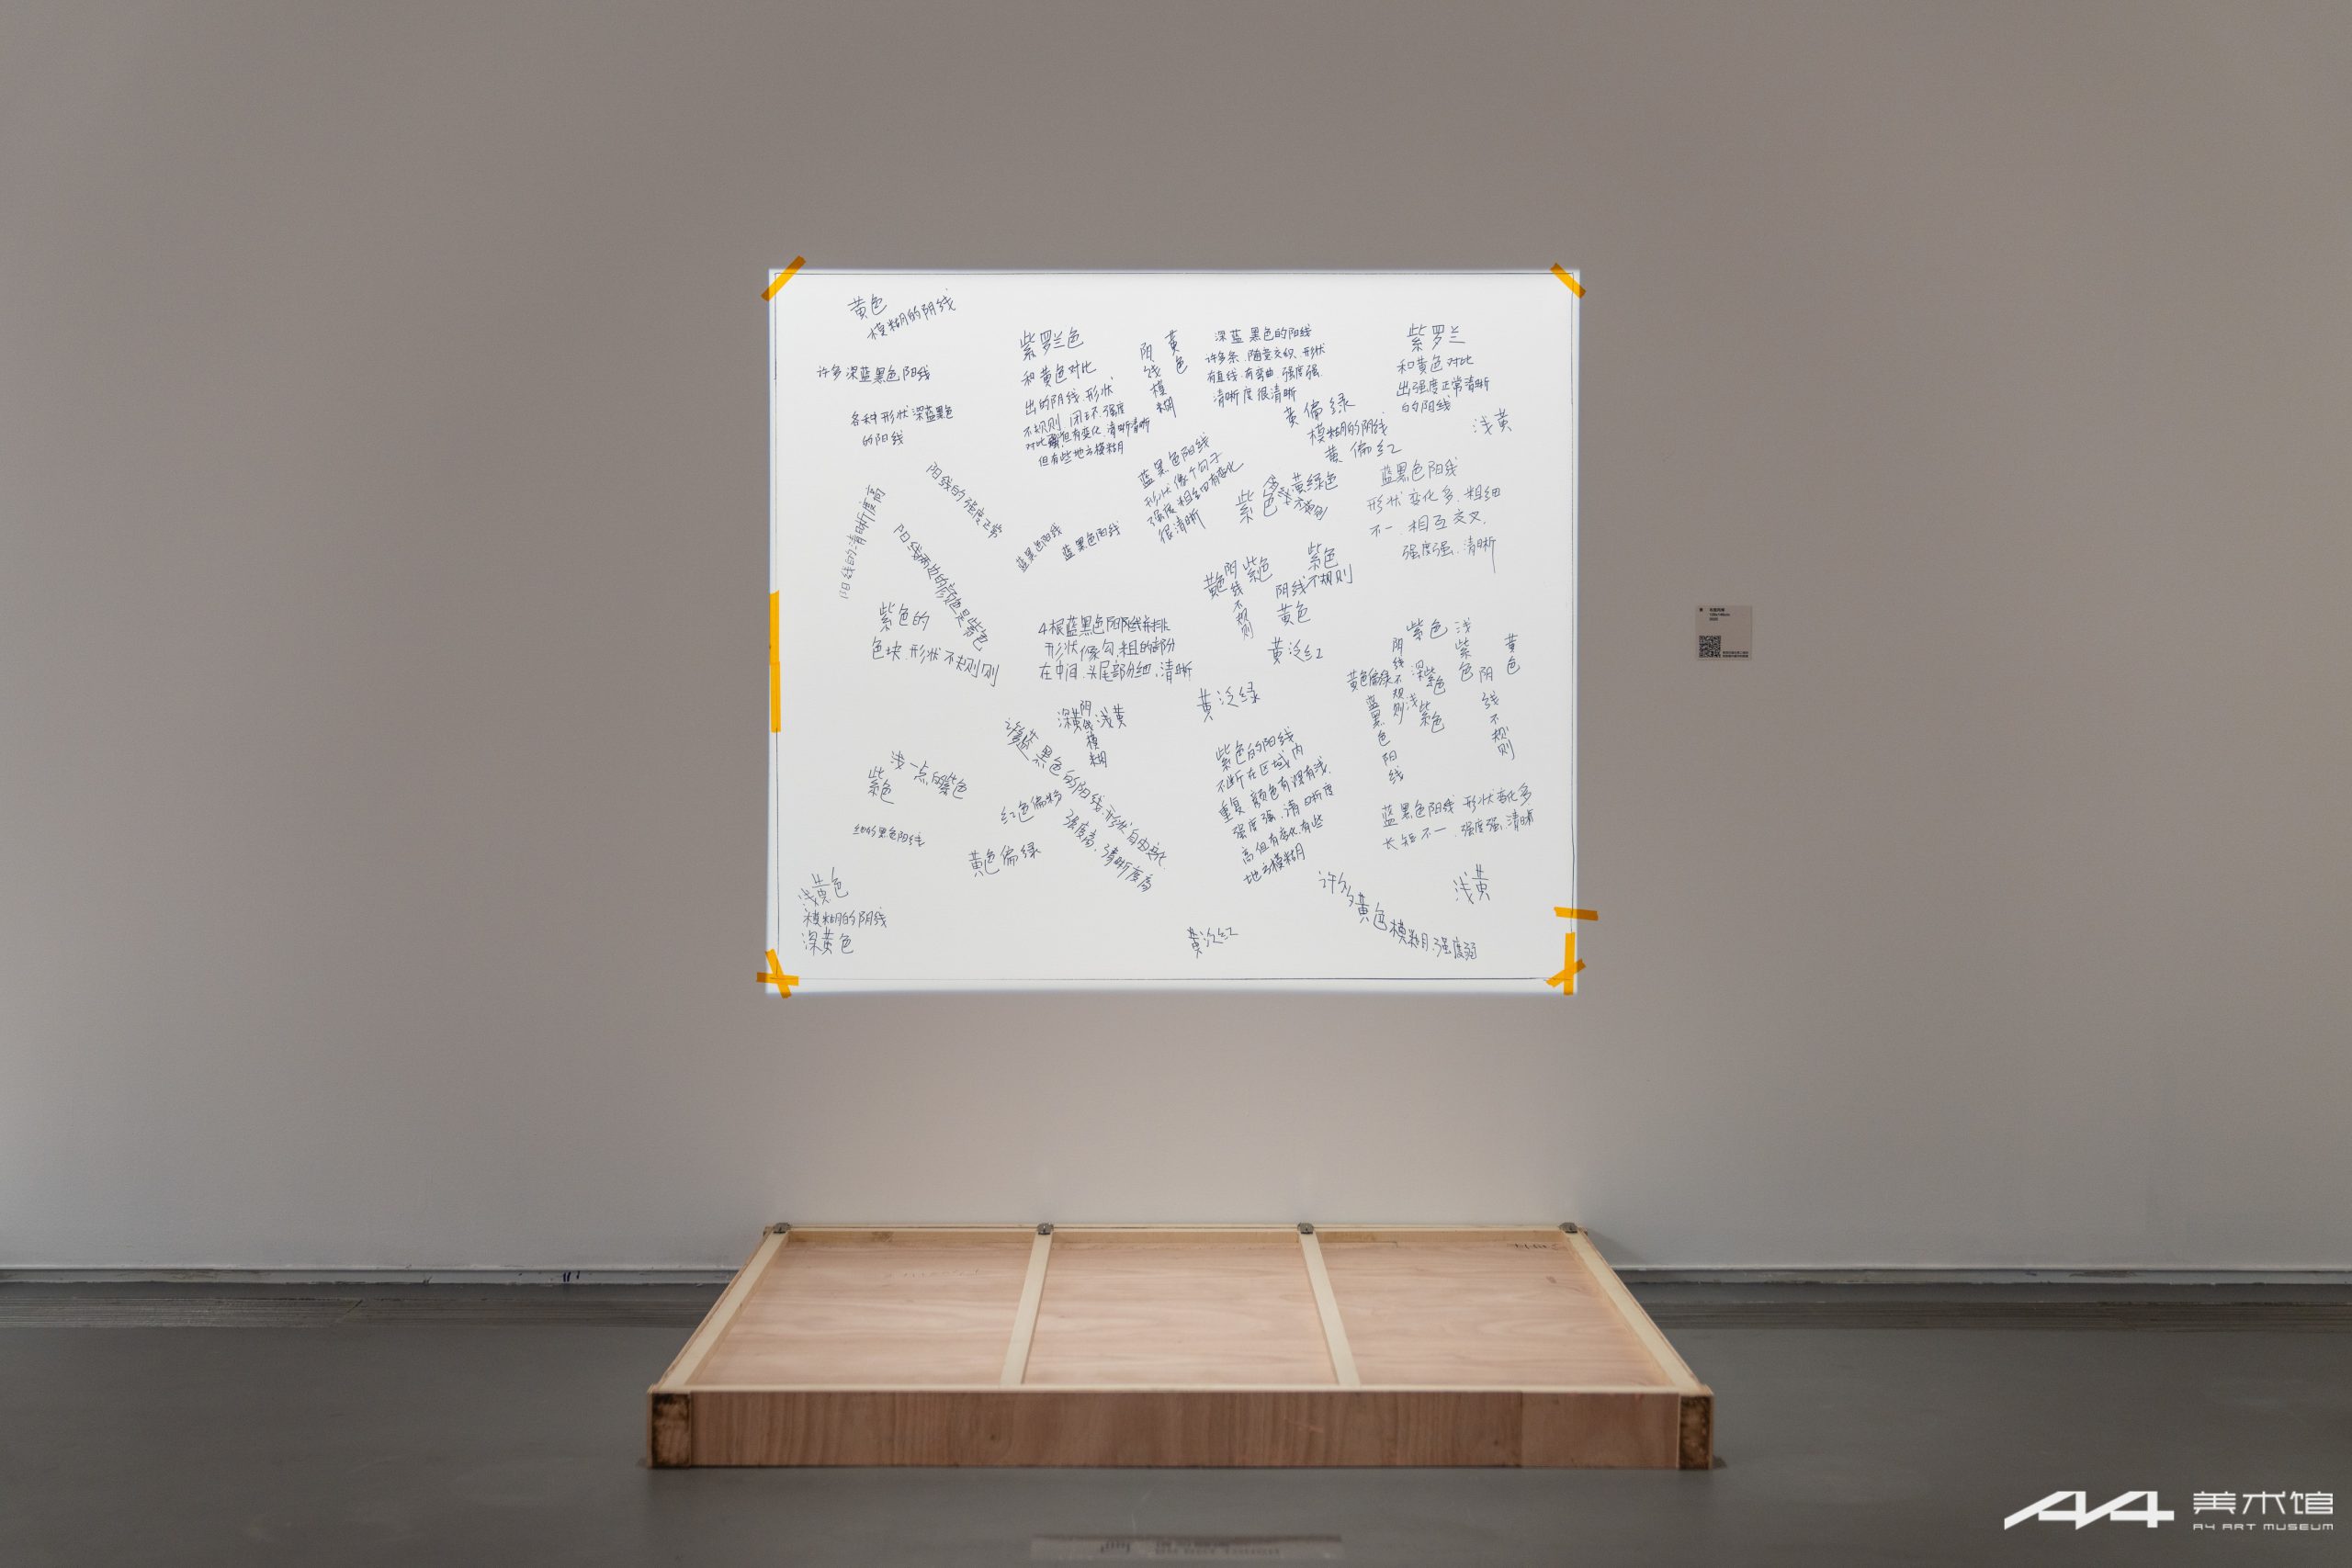 黄色
模糊的阴线
许多深蓝黑色阳线
各种形状深蓝黑色
的阳线
紫罗兰色
和黄色对比
出的阴线.形状
不规则.闭环.强度
但有些地方模糊
黄色
阴线模糊
深蓝黑色的阳线
有直线.有弯曲.强度强.
清晰度很清晰
紫罗兰
和黄色对比
出强度正常清晰
的阴线
浅黄
黄偏绿
模糊的阴线
黄偏红
蓝黑色阳线
形状像个勾子
很清晰
紫色
黄绿色
蓝黑色阳线
形状变化多.粗细
不一.相互交叉.
强度强.清晰
阳线的清晰度高
阳线的强度正常
阳线两边的颜色是紫色
蓝黑色阳线
蓝黑色阳线
紫色的
色块.形状不规则
黄色
阴线不规则
紫色
紫色
阴线不规则
黄色
黄泛红
4根蓝黑色阳线并排
形状像勾.粗的部分
在中间.头尾部分细.清晰
深黄
阴线模糊
浅黄
黄泛绿
紫色
阴线不规则
深紫色
浅紫色
浅紫色
黄色
阴线不规则
黄色偏绿
蓝黑色阳线
浅一点的紫色
紫色
黑色的阳线.形状自由变化
强度高.清晰度高
红色偏粉
黄色偏绿
紫色的阳线
不断在区域内
重复.颜色有深有浅.
强度强.清晰度
高但有变化.有些
地方模糊
蓝黑色阳线.形状变化多
长短不一.强度强.清晰
浅黄
许多黄色模糊.强度弱
浅黄色
模糊的阴线
深黄色
黄泛红
A4 美术馆
A4 ART MUSEUM